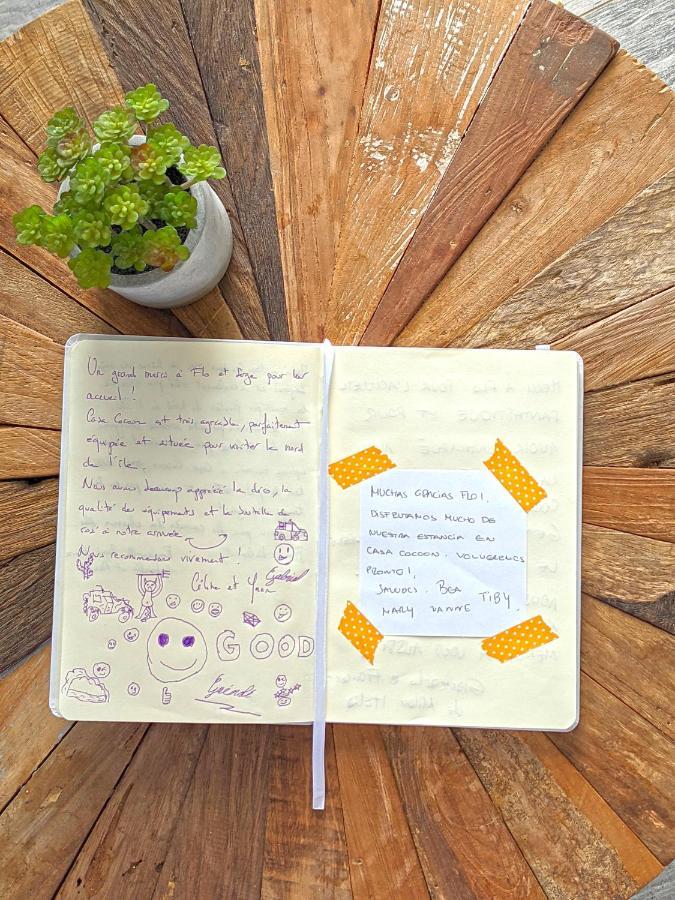 Un grand merci à Flo et Serge pour leur
accueil !
Casa Cocoon est très agréable, parfaitement
équipée et située pour visiter le nord
de l'île.
Nous avons beaucoup apprécié la déco, la
qualité des équipements et la bouteille de
à notre arrivée
Nous recommandons vivement !
Céline et Yann
Gabriel
GOOD
MUCHAS GRACIAS FLO!,
DISFRUTAMOS MUCHO DE
NUESTRA ESTANCIA EN
CASA COCOON. VOLVEREMOS
PRONTO!,
SALUDOS. BEA TIBY
MARY